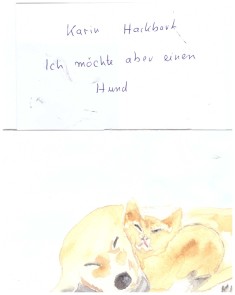 Karin
Ich möchte aber einen
Hund